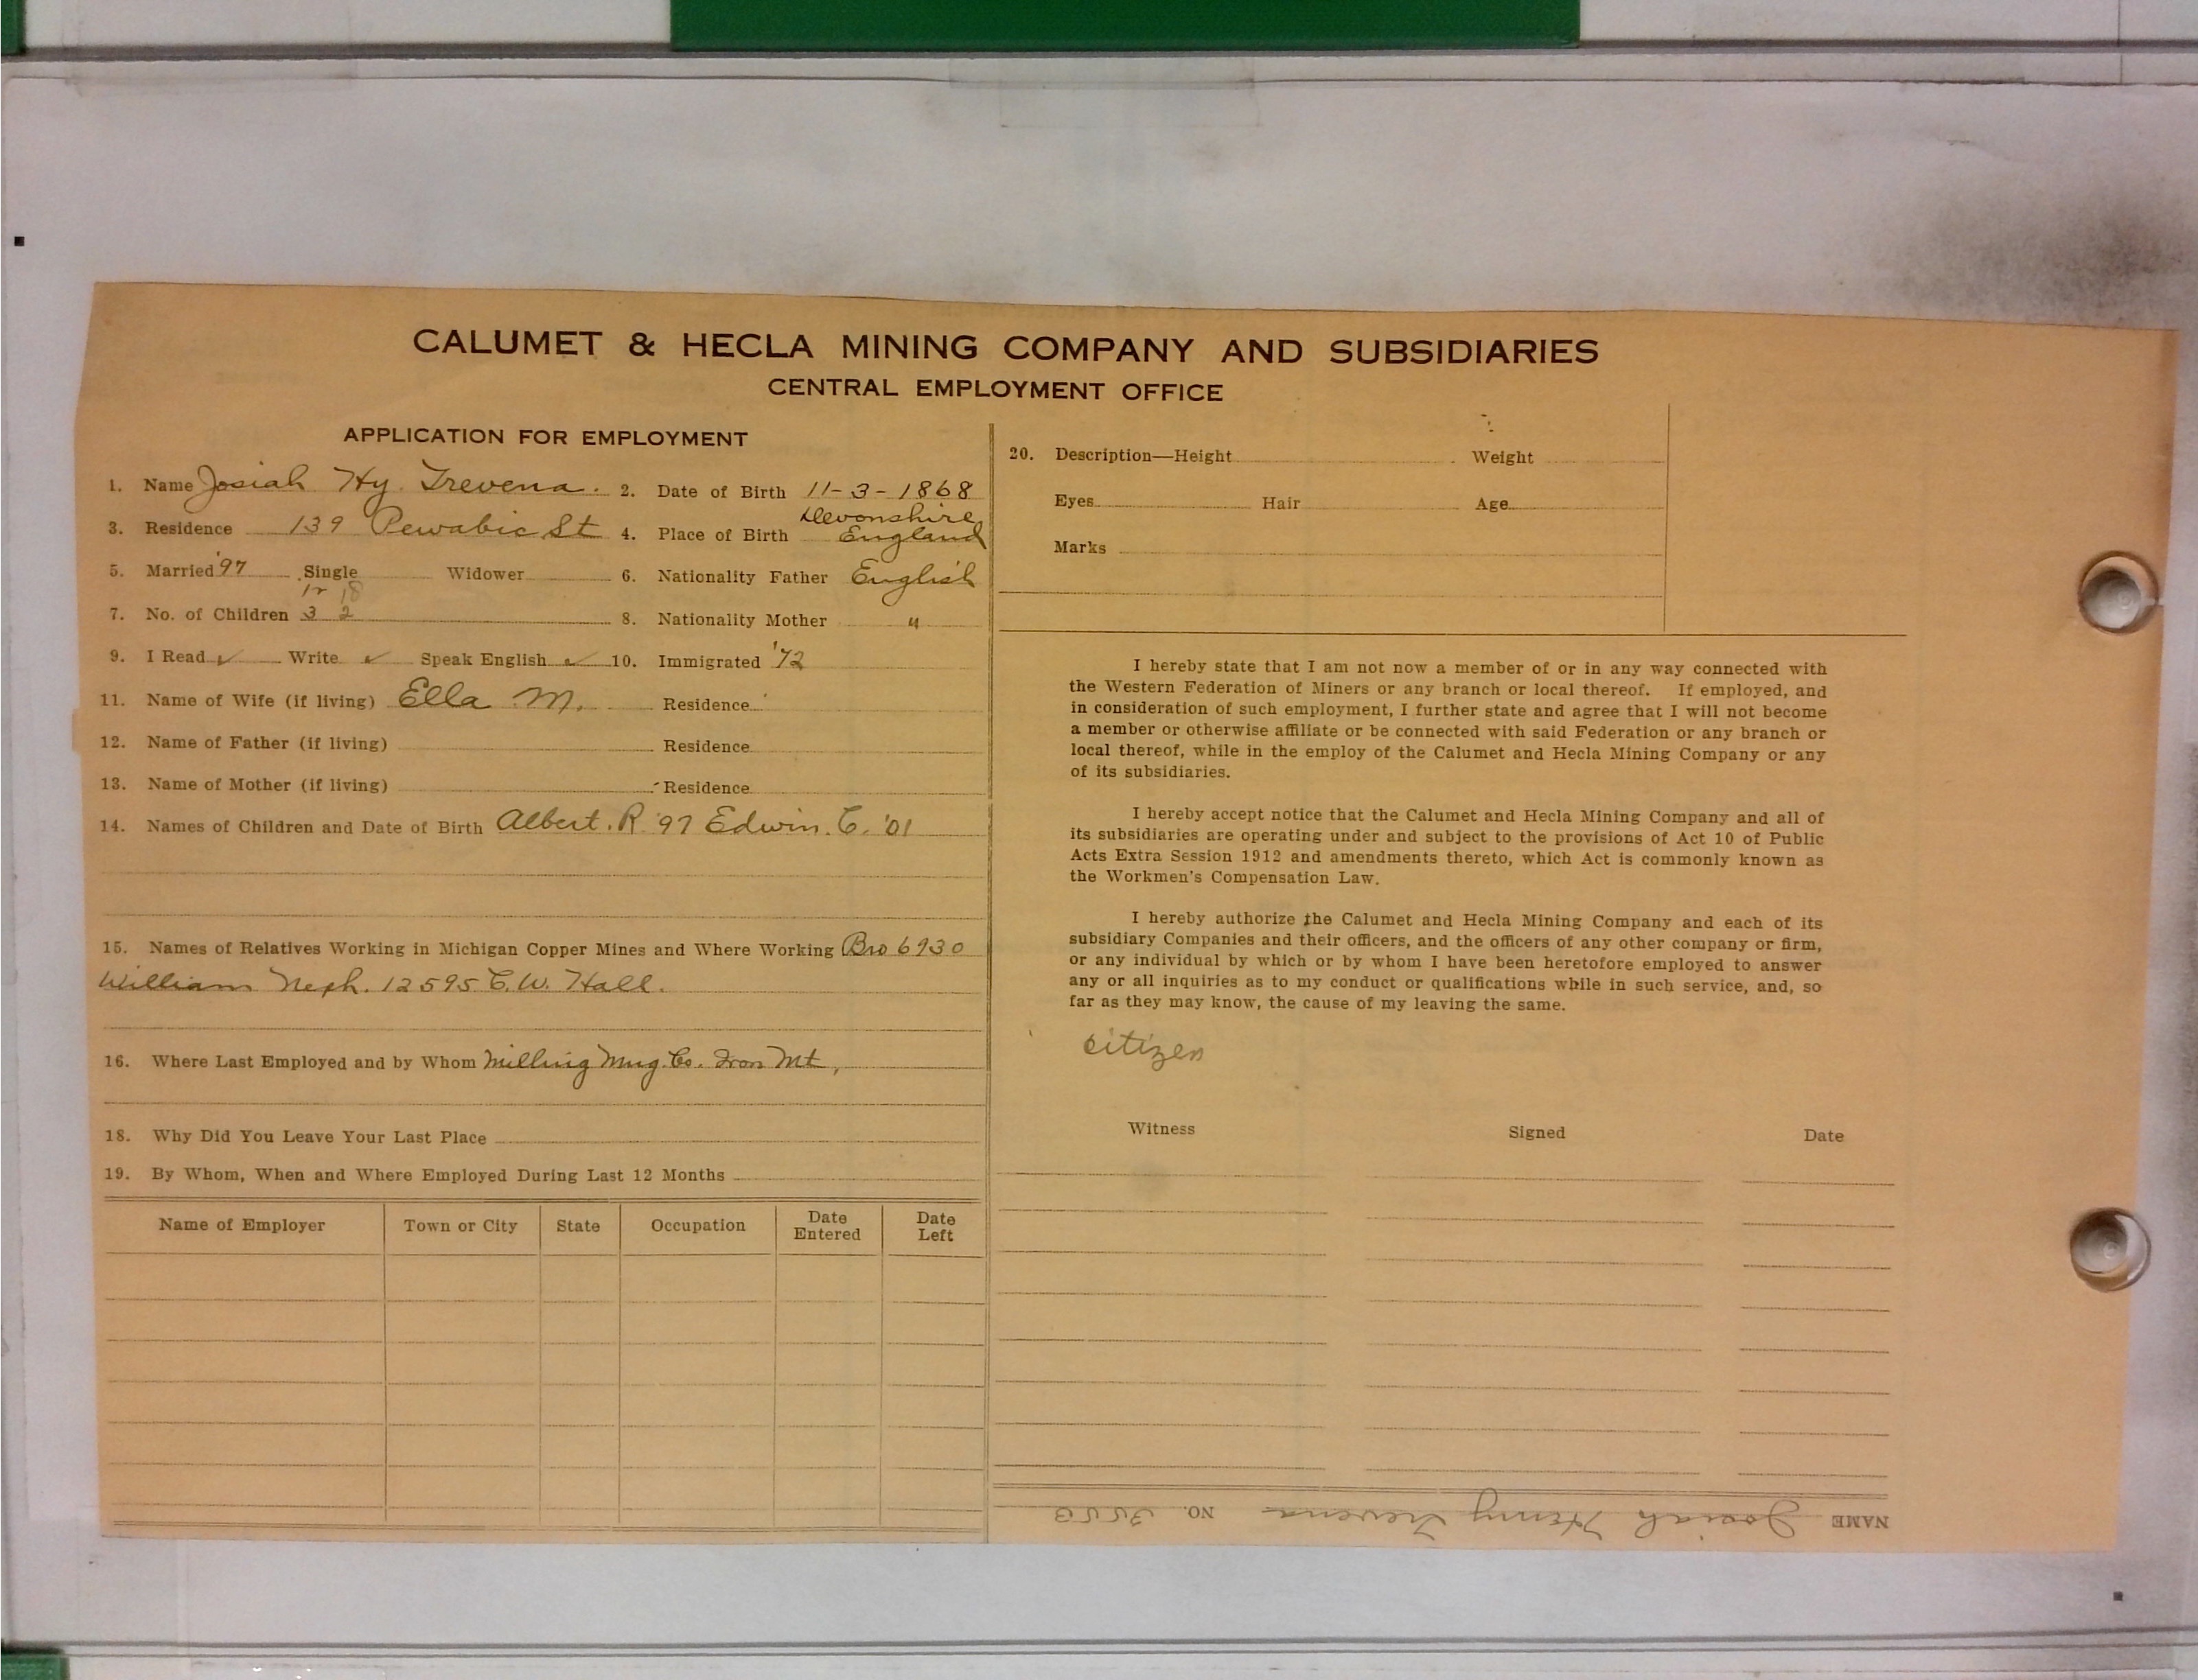 CALUMET & HECLA MINING COMPANY AND SUBSIDIARIES
CENTRAL EMPLOYMENT OFFICE
APPLICATION FOR EMPLOYMENT
1. Name Josiah Hy. Trevena. 2. Date of Birth 11-3-1868
3. Residence 139 Pewabic St 4. Place of Birth Devonshire England
5. Married '97 Single Widower 6. Nationality Father English
7. No. of Children 3 2 8. Nationality Mother "
9. I Read ✓ Write ✓ Speak English ✓ 10. Immigrated '72
11. Name of Wife (if living) Ella M. Residence
12. Name of Father (if living) Residence
13. Name of Mother (if living) Residence
14. Names of Children and Date of Birth Albert. R '97 Edwin. C. '01
15. Names of Relatives Working in Michigan Copper Mines and Where Working Bro 6930
William Neph. 12595 C. W. Hall.
16. Where Last Employed and by Whom Milling Mng. Co. Iron Mt,
18. Why Did You Leave Your Last Place
19. By Whom, When and Where Employed During Last 12 Months
Name of Employer Town or City State Occupation Date Entered Date Left
20. Description—Height Weight
Eyes Hair Age
Marks
I hereby state that I am not now a member of or in any way connected with
the Western Federation of Miners or any branch or local thereof. If employed, and
in consideration of such employment, I further state and agree that I will not become
a member or otherwise affiliate or be connected with said Federation or any branch or
local thereof, while in the employ of the Calumet and Hecla Mining Company or any
of its subsidiaries.
I hereby accept notice that the Calumet and Hecla Mining Company and all of
its subsidiaries are operating under and subject to the provisions of Act 10 of Public
Acts Extra Session 1912 and amendments thereto, which Act is commonly known as
the Workmen's Compensation Law.
I hereby authorize the Calumet and Hecla Mining Company and each of its
subsidiary Companies and their officers, and the officers of any other company or firm,
or any individual by which or by whom I have been heretofore employed to answer
any or all inquiries as to my conduct or qualifications while in such service, and, so
far as they may know, the cause of my leaving the same.
citizen
Witness Signed Date
NAME Josiah Henry Trevena NO.